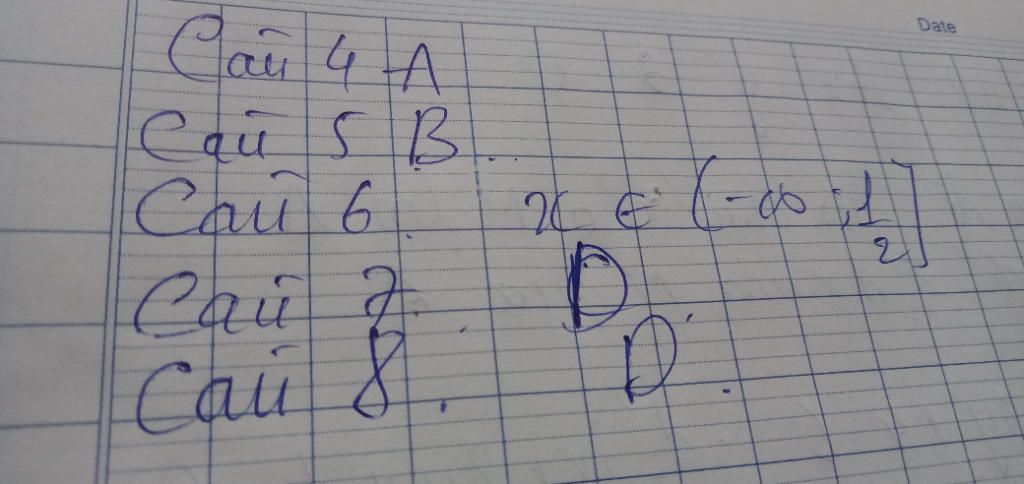 Date
Câu 4 A
Câu 5 B.
Câu 6. x ∈ (-∞; 1/2]
Câu 7. D.
Câu 8. D.